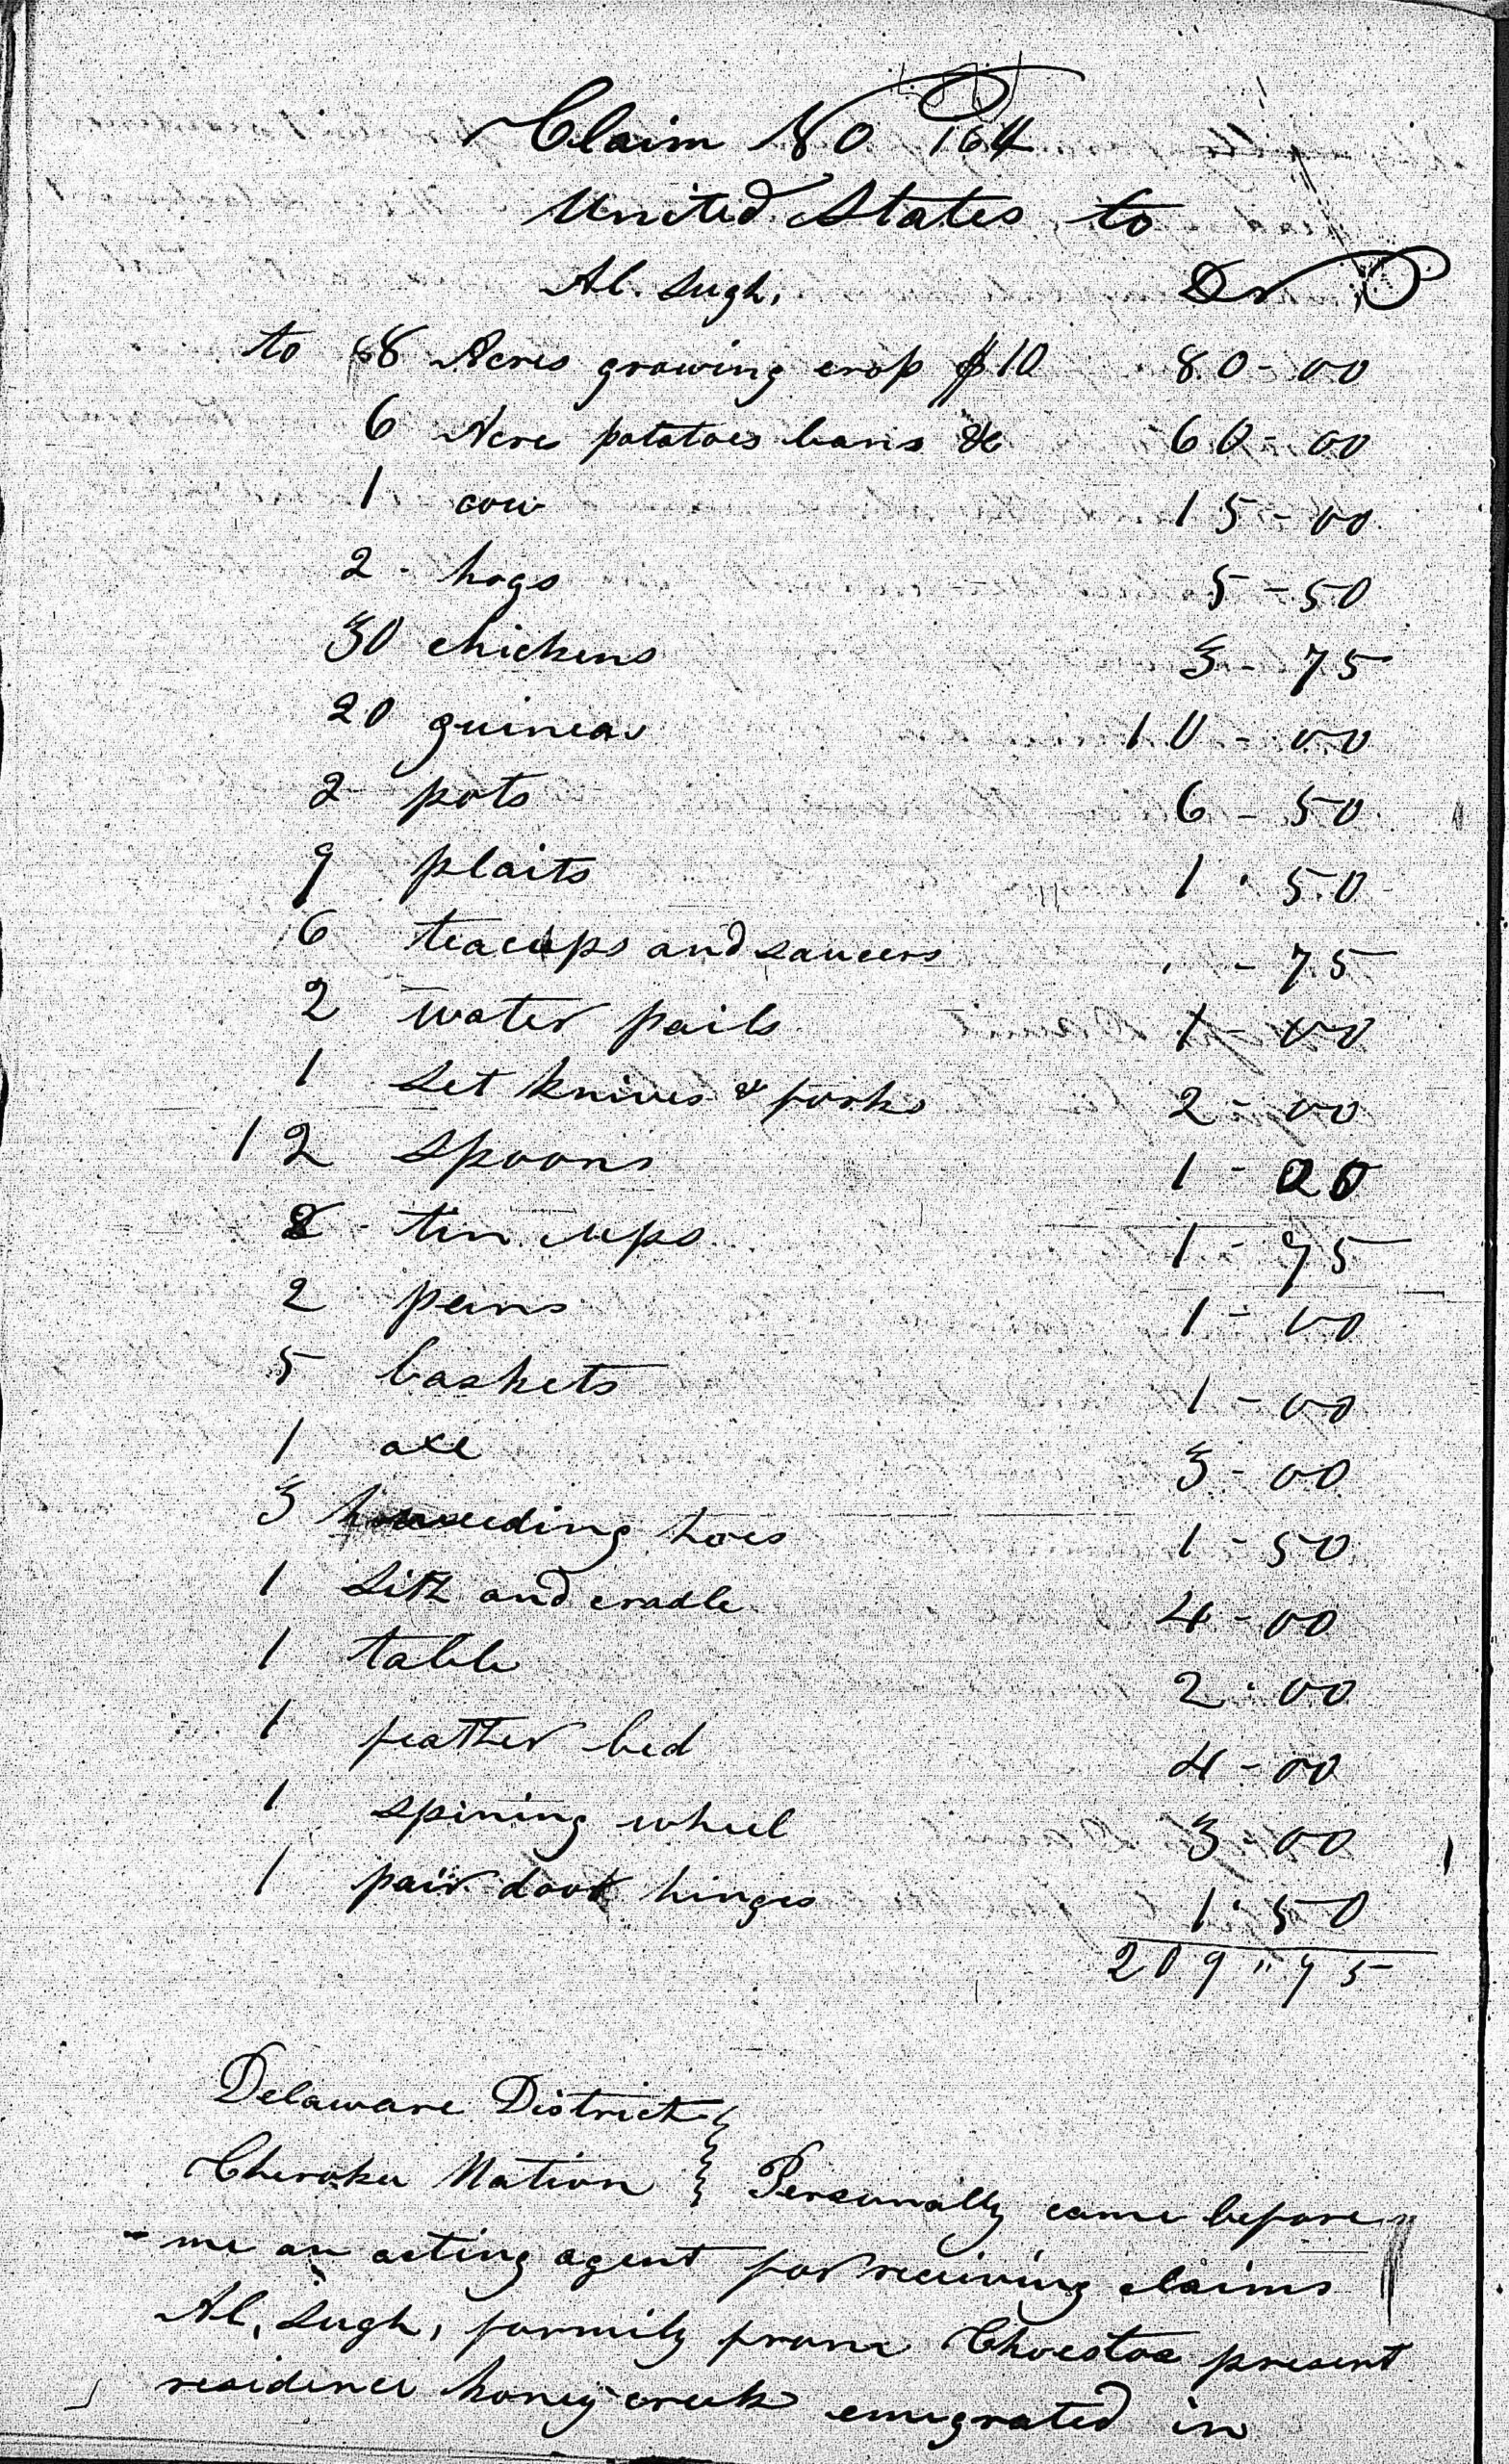 Claim No 164
United States to
Al. Sugh, Dr
to 8 Acres growing crop $10 80-00
6 Acres potatoes bans &c 60-00
1 cow 15-00
2 - hogs 5-50
30 chickens 3-75
20 guineas 10-00
2 pots 6-50
9 plaits 1.50
6 teacups and saucers - 75
2 water pails 1-00
1 Set knives & forks 2-00
12 spoons 1-00
8 - tin cups 1-75
2 pans 1-00
5 baskets 1-00
1 axe 3-00
3 weeding hoes 1-50
1 Sith and cradle 4-00
1 table 2.00
1 feather bed 4-00
1 spining wheel 3-00
1 pair door hinges 1.50
209"75
Delaware District
Cherokee Nation } Personally came before
me an acting agent for receiving claims
Al, Sugh, formily from Choestoe present
residence honey creek emigrated in